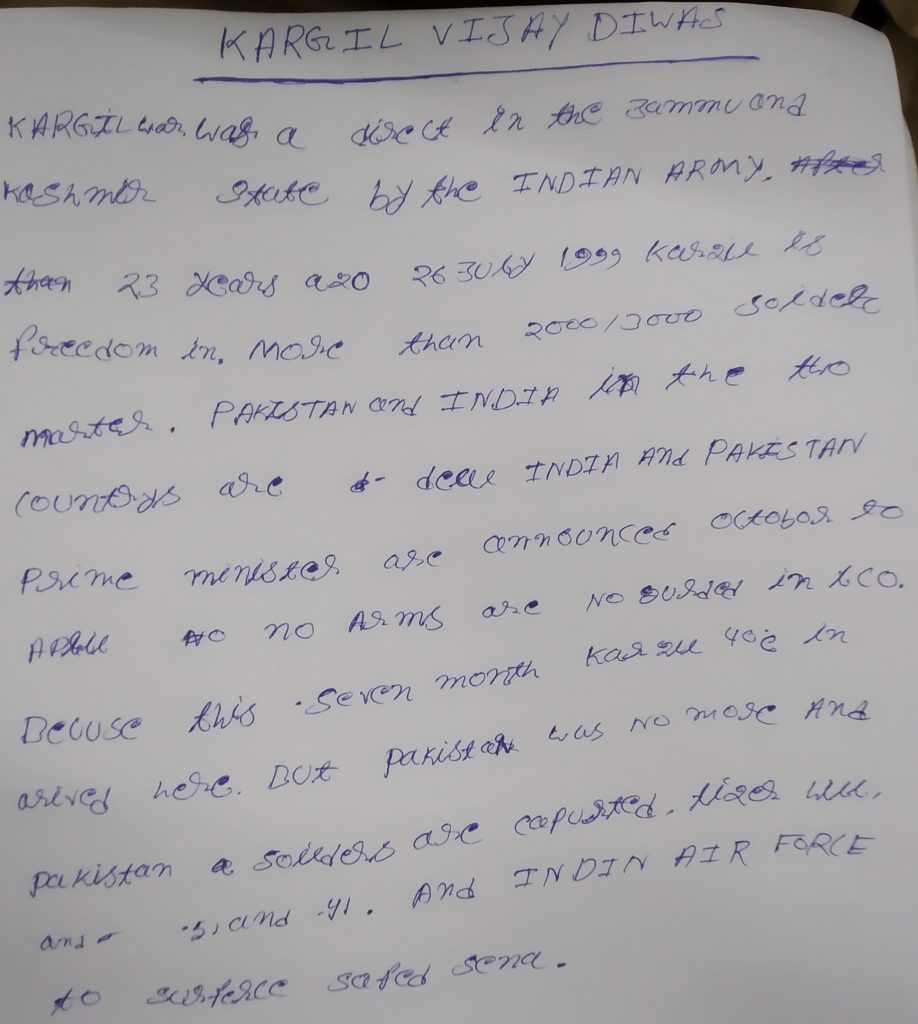 KARGIL VIJAY DIWAS
KARGIL war was a direct in the Jammu and
Kashmir State by the INDIAN ARMY.
23 years ago 26 July 1999 Kargil is
freedom in. More than 2000/3000 soldeir
marter. PAKISTAN and INDIA in the two
countrys are INDIA And PAKISTAN
Prime minister are announced octobor to
April no Arms are No in LCO.
Becuse this seven month Kargil 40°c in
arived here. But pakistan was No more And
pakistan solders are capurted. tiger
and 5, and 41. And INDIN AIR FORCE
to surferce safed send.